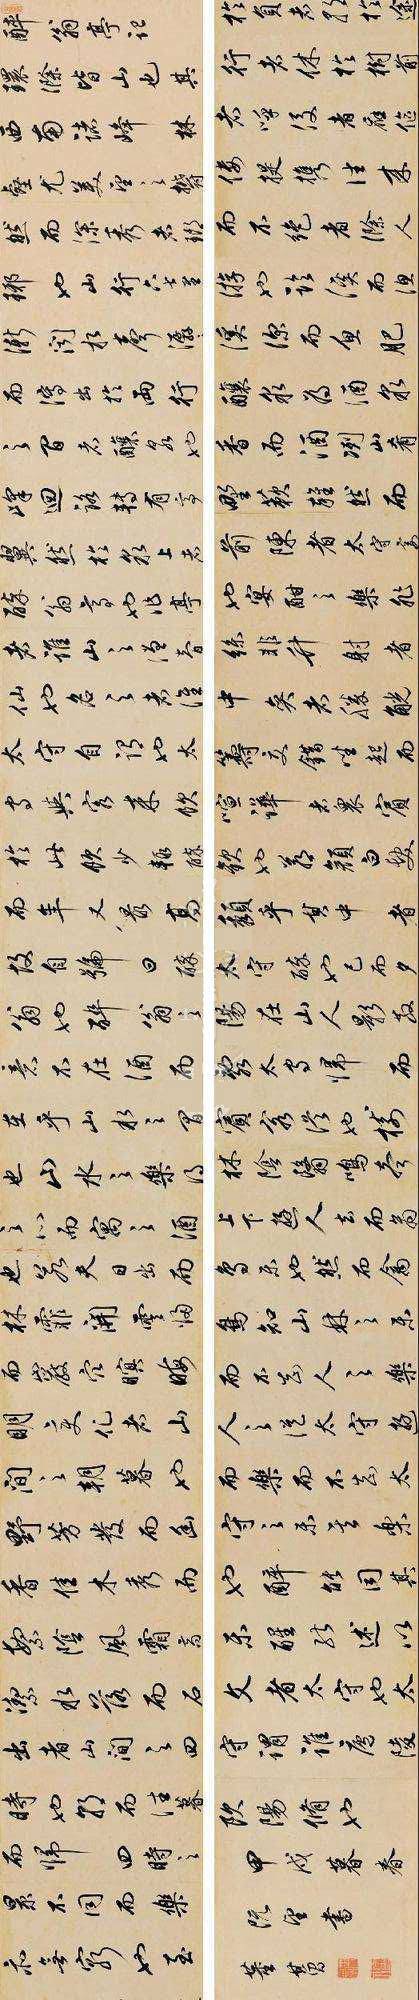 醉翁亭記
環滁皆山也其
西南諸峰林
壑尤美望之蔚
然而深秀者瑯
琊也山行六七里
漸聞水聲潺潺
而瀉出於兩峰
之間者釀泉也
峰迴路轉有亭
翼然於泉上者
醉翁亭也作亭
者誰山之僧智
仙也名之者誰
太守自謂也太
守與客來飲
於此飲少輒醉
而年又最高
故自號曰醉
翁也醉翁之
意不在酒而
在乎山水之間
也山水之樂得
之心而寓之酒
也若夫日出而
林霏開雲歸
而巖穴暝晦
明變化者山
間之朝暮也
野芳發而幽
香佳木秀而
繁陰風霜高
潔水落而石
出者山間之四
時也朝而往暮
而歸四時之
景不同而樂
亦無窮也至
於負者歌於途
行者休於樹前
者呼後者應傴
僂提攜往來
而不絕者滁人
遊也臨溪而漁
溪深而魚肥
釀泉為酒泉
香而酒洌山肴
野蔌雜然而
前陳者太守宴
也宴酣之樂非
絲非竹射者
中弈者勝觥
籌交錯坐起而
喧譁者眾賓
歡也蒼顏白髮
頹乎其中者
太守醉也已而夕
陽在山人影散
亂太守歸而
賓客從也樹
林陰翳鳴聲
上下遊人去而禽
鳥樂也然而禽
鳥知山林之樂
而不知人之樂
人知從太守遊
而樂而不知太
守之樂其樂
也醉能同其
樂醒能述以
文者太守也太
守謂誰廬陵
歐陽脩也
甲戌暮春
既望書
董其昌